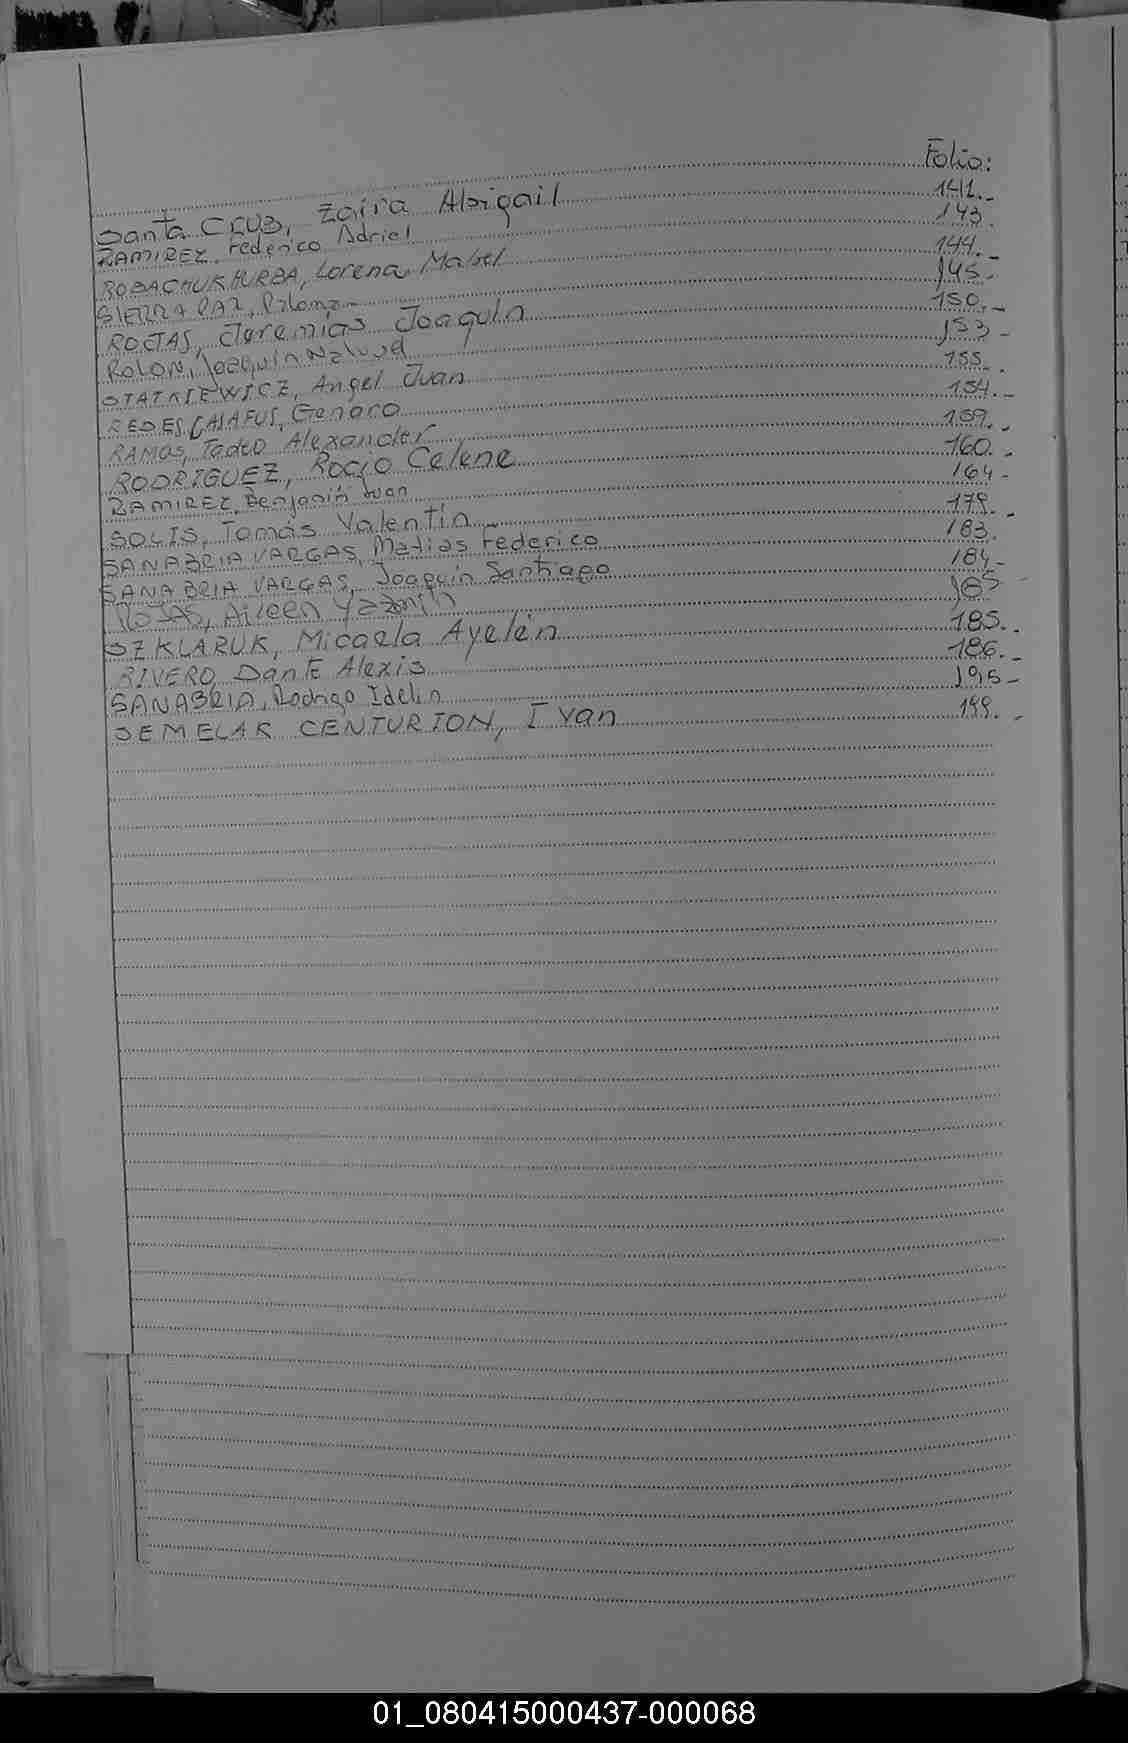 Folio:
Santa CRUZ, Zaira Abigail 141.-
RAMIREZ, Federico Adriel 143.
ROBACHUK HURBA, Lorena Mabel 144.-
SIERRA PAZ, Paloma 145.-
ROJAS, Jeremías Joaquín 150.-
ROLON, Joaquín Nahuel 153-
STATKIEWICZ, Angel Juan 155.-
REDES, Genaro 154.-
RAMOS, Tadeo Alexander 159.-
RODRIGUEZ, Rocio Celene 160.-
RAMIREZ, Benjamín Juan 164-
SOLIS, Tomás Valentín 179.-
SANABRIA VARGAS, Matias Federico 183.
SANABRIA VARGAS, Joaquín Santiago 184-
ROJAS, Aileen Yazmín
SZKLARUK, Micaela Ayelén 185.-
RIVERO, Dante Alexis 186.-
SANABRIA, Rodrigo 195-
SEMELAK CENTURION, Ivan 199.-
01_080415000437-000068